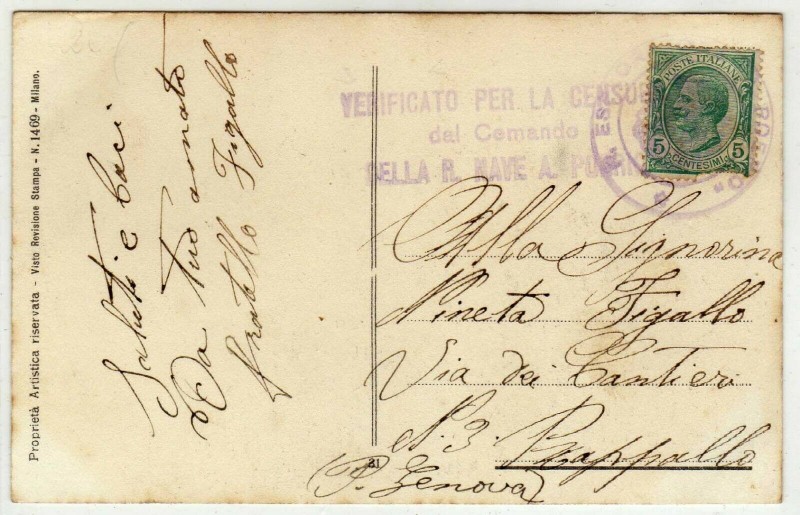 Proprietà Artistica riservata - Visto Revisione Stampa - N. 1469 - Milano.
Saluti e baci
Da tuo amato
fratello Figallo
VERIFICATO PER LA CENSU
dal Comando
DELLA R. NAVE A.
POSTE ITALIANE
5 5
CENTESIMI
Alla Signorina
Nineta Figallo
Via dei Cantieri
N. 3. Rappallo
(P. Genova)
21